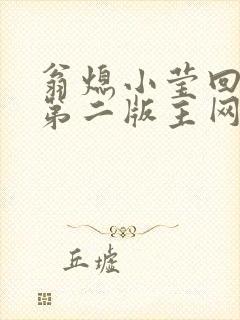 翁熄小莹回
第二版主网
丘墟